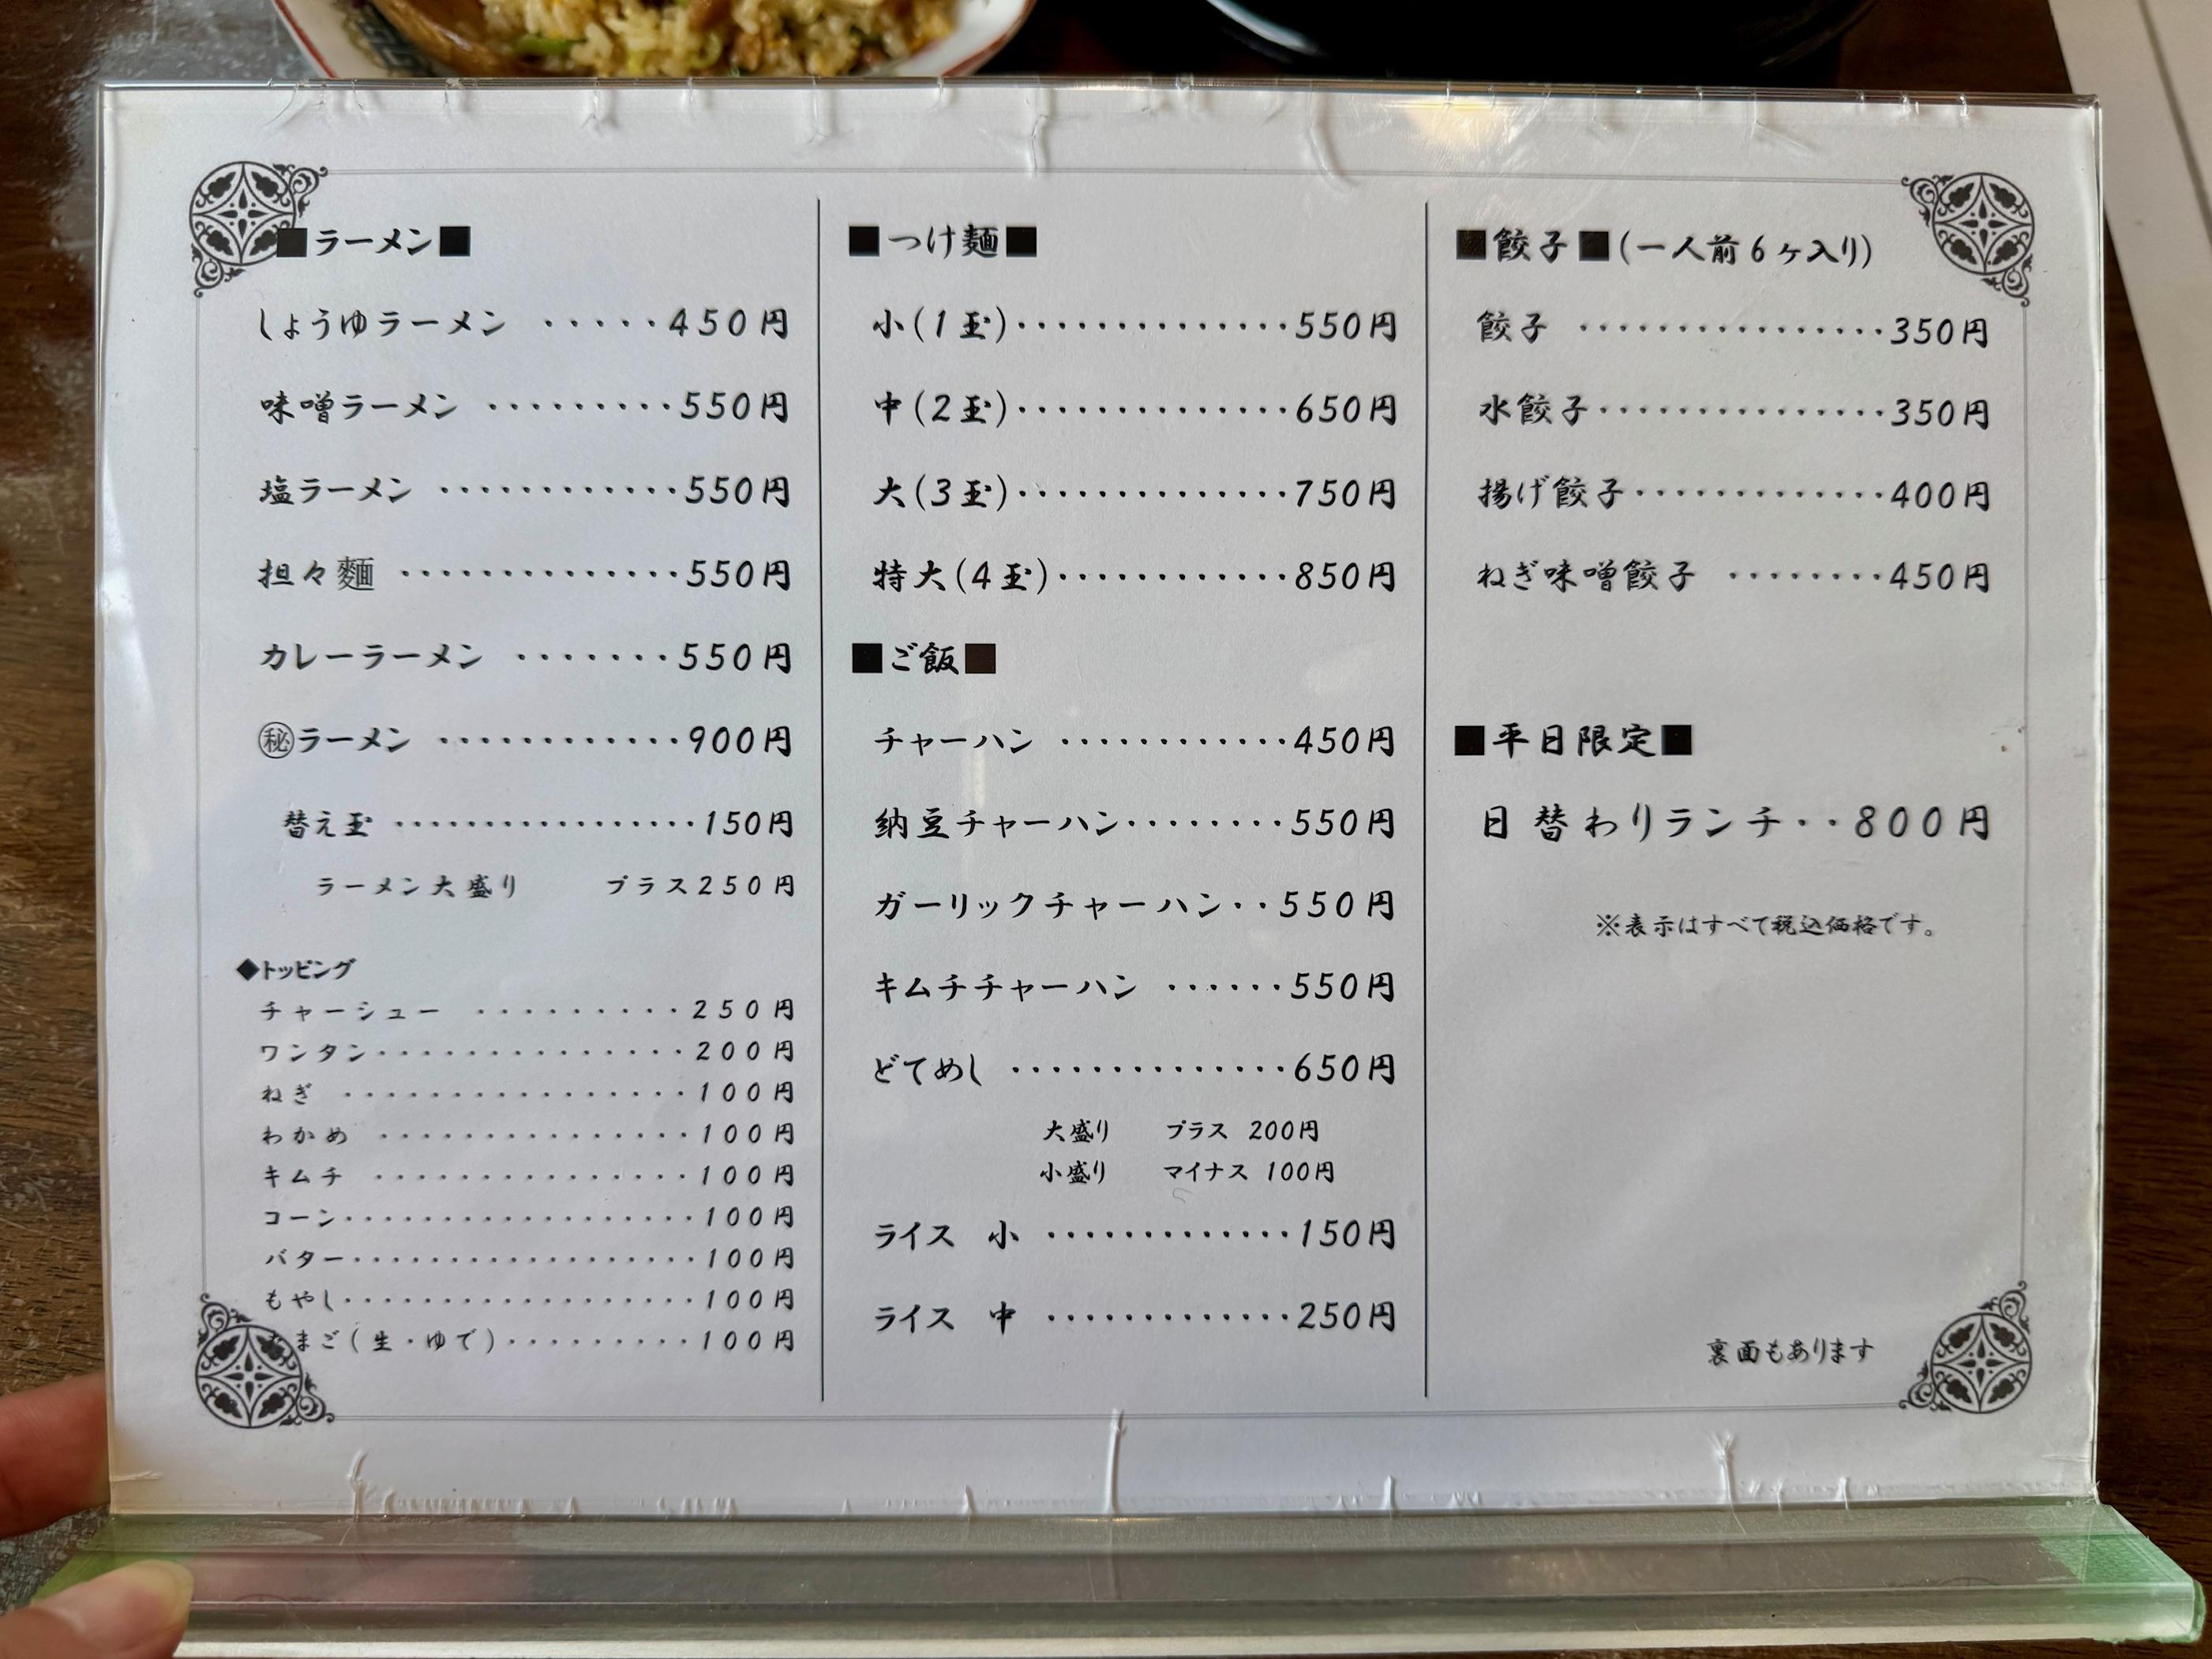 ■ラーメン■
しょうゆラーメン ・・・・・450円
味噌ラーメン ・・・・・・・・・550円
塩ラーメン ・・・・・・・・・・・・550円
担々麵 ・・・・・・・・・・・・・・550円
カレーラーメン ・・・・・・・550円
㊙ラーメン ・・・・・・・・・・・・900円
替え玉 ・・・・・・・・・・・・・・・・・150円
ラーメン大盛り プラス250円
◆トッピング
チャーシュー ・・・・・・・・・250円
ワンタン・・・・・・・・・・・・・・・200円
ねぎ ・・・・・・・・・・・・・・・・・100円
わかめ ・・・・・・・・・・・・・・・100円
キムチ ・・・・・・・・・・・・・・・100円
コーン・・・・・・・・・・・・・・・・・100円
バター・・・・・・・・・・・・・・・・・100円
もやし・・・・・・・・・・・・・・・・・100円
たまご(生・ゆで)・・・・・・・・・100円
■つけ麺■
小(1玉)・・・・・・・・・・・・・・550円
中(2玉)・・・・・・・・・・・・・・650円
大(3玉)・・・・・・・・・・・・・・750円
特大(4玉)・・・・・・・・・・・・850円
■ご飯■
チャーハン ・・・・・・・・・・・・450円
納豆チャーハン・・・・・・・・550円
ガーリックチャーハン・・550円
キムチチャーハン ・・・・・・550円
どてめし ・・・・・・・・・・・・・・650円
大盛り プラス 200円
小盛り マイナス 100円
ライス 小 ・・・・・・・・・・・・・150円
ライス 中 ・・・・・・・・・・・・・250円
■餃子■(一人前6ヶ入り)
餃子 ・・・・・・・・・・・・・・・・350円
水餃子・・・・・・・・・・・・・・・350円
揚げ餃子・・・・・・・・・・・・・400円
ねぎ味噌餃子 ・・・・・・・・450円
■平日限定■
日替わりランチ・・800円
※表示はすべて税込価格です。
裏面もあります